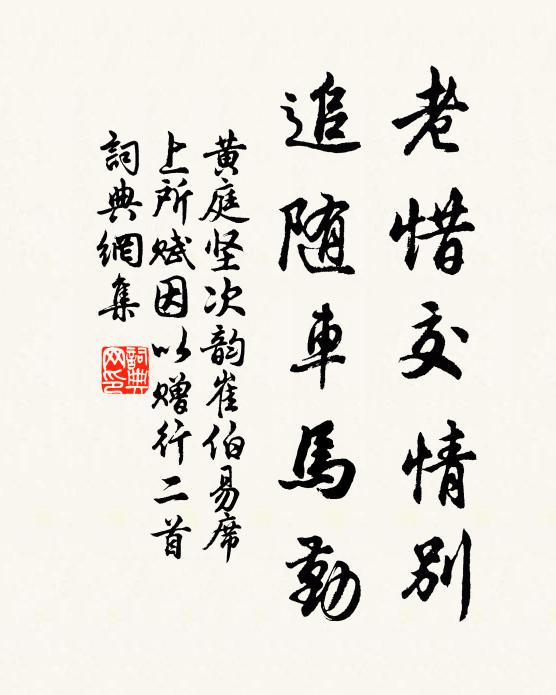 老惜交情别
追随車馬勤
黄庭坚次韵崔伯易席
上所赋因以赠行二首
詞典網集
詞典
网印